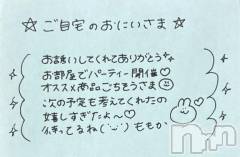 ☆ ご自宅のおにいさま ☆
お誘いしてくれてありがとう
お部屋でパーティー開催♡
オススメ商品ごちそうさま☺
次の予定も考えてくれたの
嬉しすぎたよ〜♡
待ってるね(˙ᵕ˙) ももか